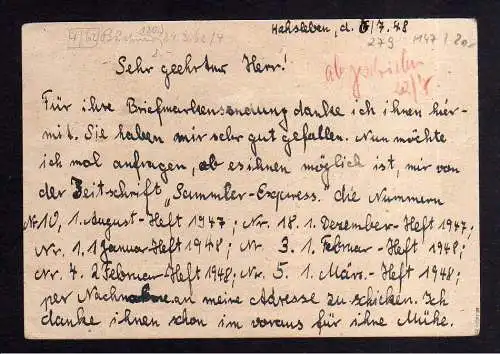 Hahsleben, d. 6/7.48
279 M47 / 20,-
Sehr geehrter Herr!
abgeschrieben
22/7.
Für ihre Briefmarkensendung danke ich ihnen hier-
mit. Sie haben mir sehr gut gefallen. Nun möchte
ich mal anfragen, ob es ihnen möglich ist, mir von
der Zeitschrift "Sammler-Express." die Nummern
Nr 10, 1. August-Heft 1947; Nr. 18. 1. Dezember-Heft 1947;
Nr. 1. 1 Januar-Heft 1948; Nr. 3. 1. Februar-Heft 1948;
Nr. 4. 2 Februar-Heft 1948; Nr. 5. 1. März.-Heft 1948;
per Nachnahme.an meine Adresse zu schicken. Ich
danke ihnen schon im voraus für ihre Mühe.